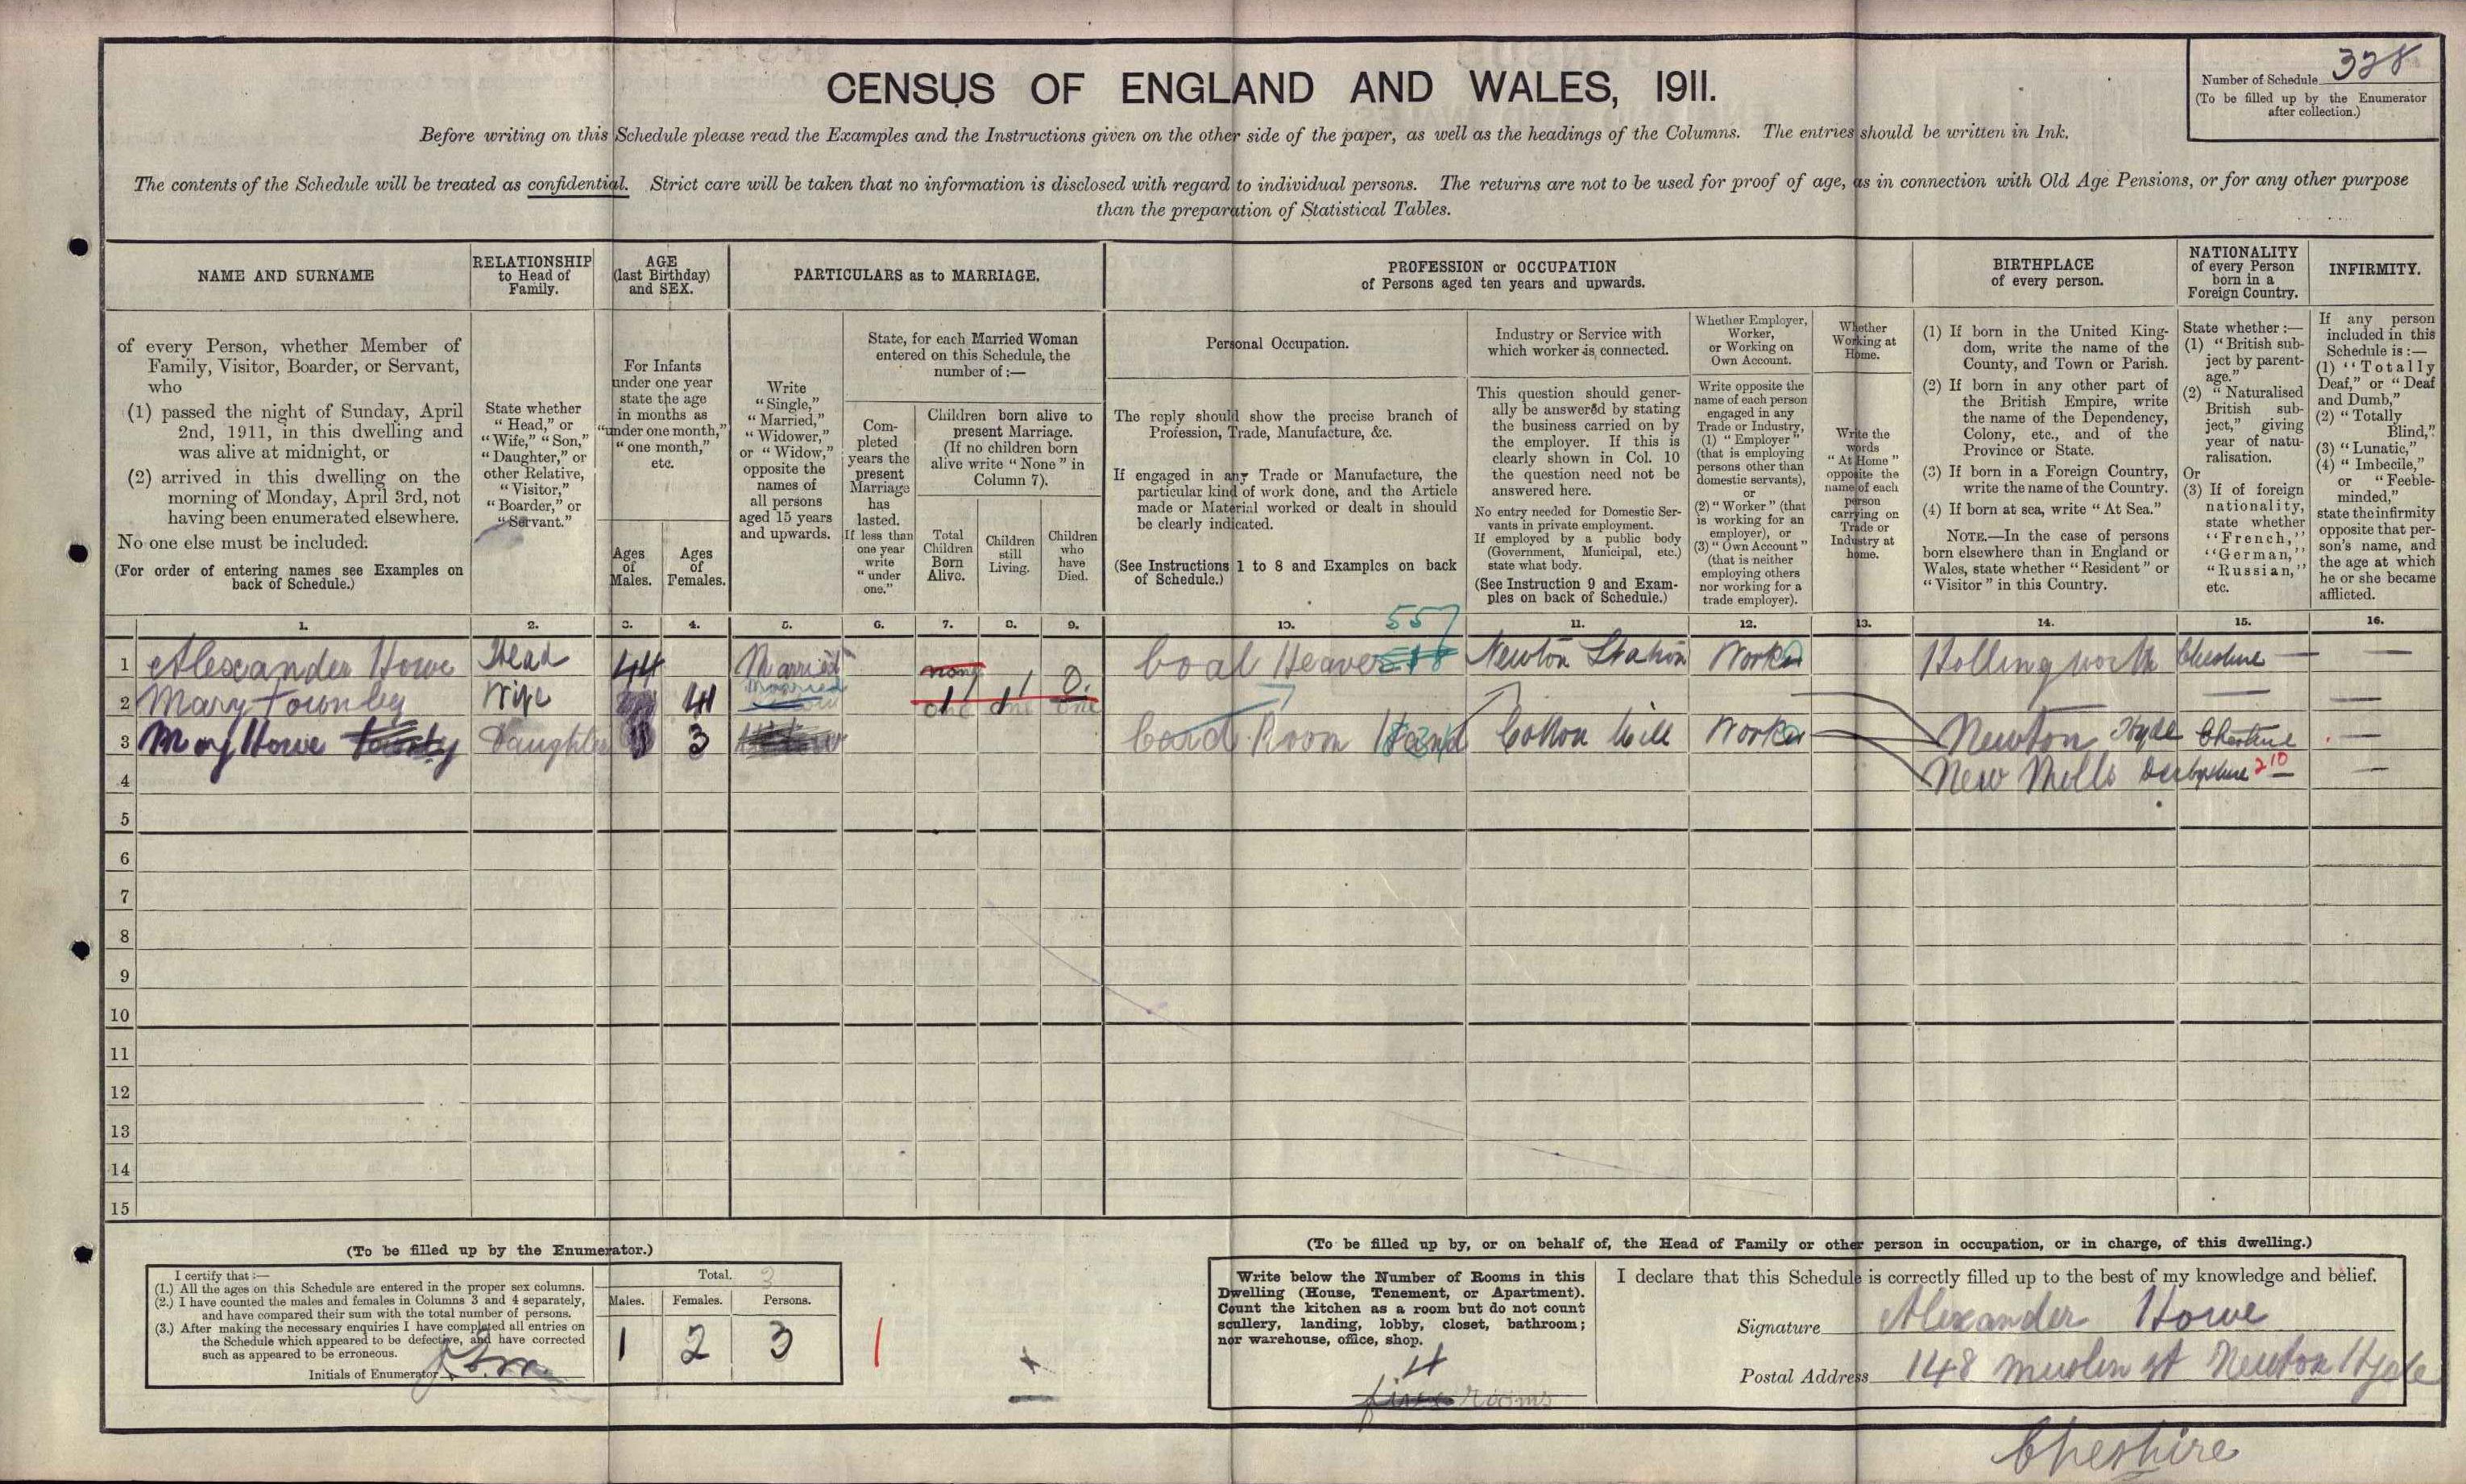 Number of Schedule 328
(To be filled up by the Enumerator
after collection.)
CENSUS OF ENGLAND AND WALES, 1911.
Before writing on this Schedule please read the Examples and the Instructions given on the other side of the paper, as well as the headings of the Columns. The entries should be written in Ink.
The contents of the Schedule will be treated as confidential. Strict care will be taken that no information is disclosed with regard to individual persons. The returns are not to be used for proof of age, as in connection with Old Age Pensions, or for any other purpose
than the preparation of Statistical Tables.
NAME AND SURNAME
of every Person, whether Member of
Family, Visitor, Boarder, or Servant,
who
(1) passed the night of Sunday, April
2nd, 1911, in this dwelling and
was alive at midnight, or
(2) arrived in this dwelling on the
morning of Monday, April 3rd, not
having been enumerated elsewhere.
No one else must be included.
(For order of entering names see Examples on
back of Schedule.)
RELATIONSHIP
to Head of
Family.
State whether
"Head," or
"Wife," "Son,"
"Daughter," or
other Relative,
"Visitor,"
"Boarder," or
"Servant."
AGE
(last Birthday)
and SEX.
For Infants
under one year
state the age
in months as
"under one month,"
"one month,"
etc.
Ages
of
Males.
Ages
of
Females.
PARTICULARS as to MARRIAGE.
Write
"Single,"
"Married,"
"Widower,"
or "Widow,"
opposite the
names of
all persons
aged 15 years
and upwards.
State, for each Married Woman
entered on this Schedule, the
number of :—
Com-
pleted
years the
present
Marriage
has
lasted.
If less than
one year
write
"under
one."
Children born alive to
present Marriage.
(If no children born
alive write "None" in
Column 7).
Total
Children
Born
Alive.
Children
still
Living.
Children
who
have
Died.
PROFESSION or OCCUPATION
of Persons aged ten years and upwards.
Personal Occupation.
The reply should show the precise branch of
Profession, Trade, Manufacture, &c.
If engaged in any Trade or Manufacture, the
particular kind of work done, and the Article
made or Material worked or dealt in should
be clearly indicated.
(See Instructions 1 to 8 and Examples on back
of Schedule.)
Industry or Service with
which worker is connected.
This question should gener-
ally be answered by stating
the business carried on by
the employer. If this is
clearly shown in Col. 10
the question need not be
answered here.
No entry needed for Domestic Ser-
vants in private employment.
If employed by a public body
(Government, Municipal, etc.)
state what body.
(See Instruction 9 and Exam-
ples on back of Schedule.)
Whether Employer,
Worker,
or Working on
Own Account.
Write opposite the
name of each person
engaged in any
Trade or Industry,
(1) "Employer"
(that is employing
persons other than
domestic servants),
or
(2) "Worker" (that
is working for an
employer), or
(3) "Own Account"
(that is neither
employing others
nor working for a
trade employer).
Whether
Working at
Home.
Write the
words
"At Home"
opposite the
name of each
person
carrying on
Trade or
Industry at
home.
BIRTHPLACE
of every person.
(1) If born in the United King-
dom, write the name of the
County, and Town or Parish.
(2) If born in any other part of
the British Empire, write
the name of the Dependency,
Colony, etc., and of the
Province or State.
(3) If born in a Foreign Country,
write the name of the Country.
(4) If born at sea, write "At Sea."
NOTE.—In the case of persons
born elsewhere than in England or
Wales, state whether "Resident" or
"Visitor" in this Country.
NATIONALITY
of every Person
born in a
Foreign Country.
State whether :—
(1) "British sub-
ject by parent-
age."
(2) "Naturalised
British sub-
ject," giving
year of natu-
ralisation.
Or
(3) If of foreign
nationality,
state whether
"French,"
"German,"
"Russian,"
etc.
INFIRMITY.
If any person
included in this
Schedule is :—
(1) "Totally
Deaf," or "Deaf
and Dumb,"
(2) "Totally
Blind,"
(3) "Lunatic,"
(4) "Imbecile,"
or "Feeble-
minded,"
state the infirmity
opposite that per-
son's name, and
the age at which
he or she became
afflicted.
1. 2. 3. 4. 5. 6. 7. 8. 9. 10. 11. 12. 13. 14. 15. 16.
557
1 Alexander Howe Head 44 Married none Coal Heaver 518 Newton Station Worker Hollingworth Cheshire — —
2 Mary Townley Wife 41 Married 1 1 0 — —
one one one
3 May Howe Townley Daughter 3 Card Room Hand Cotton Mill Worker Newton Hyde Cheshire —
4 New Mills Derbyshire 210 —
5
6
7
8
9
10
11
12
13
14
15
(To be filled up by the Enumerator.)
I certify that :—
(1.) All the ages on this Schedule are entered in the proper sex columns.
(2.) I have counted the males and females in Columns 3 and 4 separately,
and have compared their sum with the total number of persons.
(3.) After making the necessary enquiries I have completed all entries on
the Schedule which appeared to be defective, and have corrected
such as appeared to be erroneous.
Initials of Enumerator
Total. 3
Males. Females. Persons.
1 2 3
1
(To be filled up by, or on behalf of, the Head of Family or other person in occupation, or in charge, of this dwelling.)
Write below the Number of Rooms in this
Dwelling (House, Tenement, or Apartment).
Count the kitchen as a room but do not count
scullery, landing, lobby, closet, bathroom;
nor warehouse, office, shop.
4
rooms
I declare that this Schedule is correctly filled up to the best of my knowledge and belief.
Signature Alexander Howe
Postal Address 148 Muslin st Newton Hyde
Cheshire